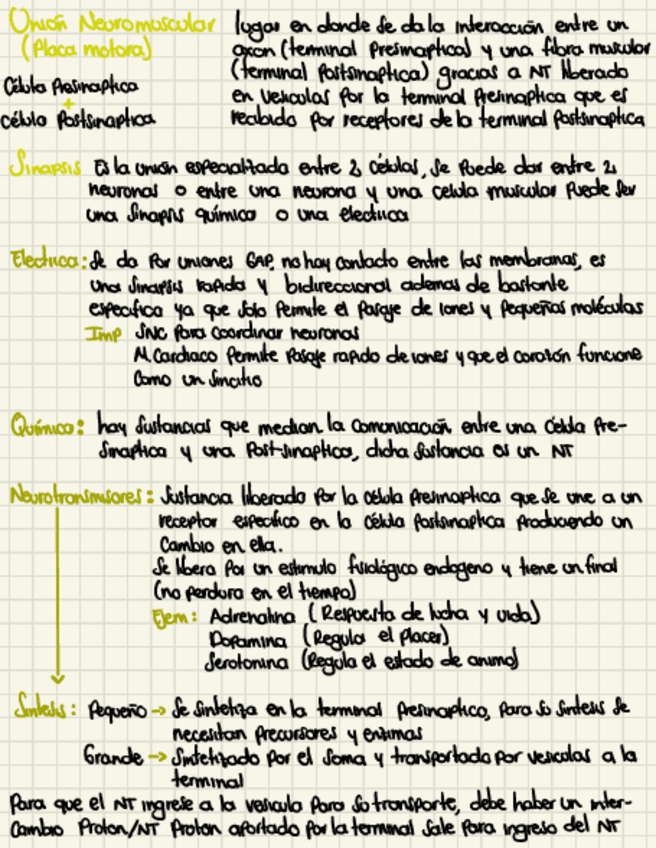 Unión Neuromuscular
(Placa motora)
lugar en donde se da la interacción entre un
axon (terminal Presinaptica) y una fibra muscular
(terminal Postsinaptica) gracias a NT liberado
en vesiculas Por la terminal Presinaptica que es
recibido Por receptores de la terminal Postsinaptica
Célula Presinaptica
+
célula Postsinaptica
Sinapsis Es la unión especializada entre 2 células, se Puede dar entre 2
neuronas o entre una neurona y una celula muscular Puede ser
una Sinapsis química o una electrica
Electrica: Se da Por uniones GAP, no hay contacto entre las membranas, es
una sinapsis rapida y bidireccional ademas de bastante
especifica ya que solo Permite el Pasaje de iones y Pequeñas moléculas
Imp SNC Para coordinar neuronas
M. Cardiaco Permite Pasaje rapido de iones y que el corazón funcione
como un sincitio
Química: hay sustancias que median la comunicación entre una Célula Pre-
sinaptica y una Post-sinaptica, dicha sustancia es un NT
Neurotransmisores: Sustancia liberada Por la célula Presinaptica que se une a un
receptor especifico en la célula Postsinaptica Produciendo un
Cambio en ella.
Se libera Por un estimulo fisiológico endogeno y tiene un final
(no perdura en el tiempo)
Ejem: Adrenalina (Respuesta de lucha y uida)
Dopamina (Regula el Placer)
Serotonina (Regula el estado de animo)
Sintesis: Pequeño → Se sintetiza en la terminal Presinaptica, Para su sintesis se
necesitan Precursores y enzimas
Grande → Sintetizado Por el Soma y transportado por vesiculas a la
terminal
Para que el NT ingrese a la vesicula Para su transporte, debe haber un inter-
Cambio Proton/NT Proton aportado por la terminal Sale Para ingreso del NT